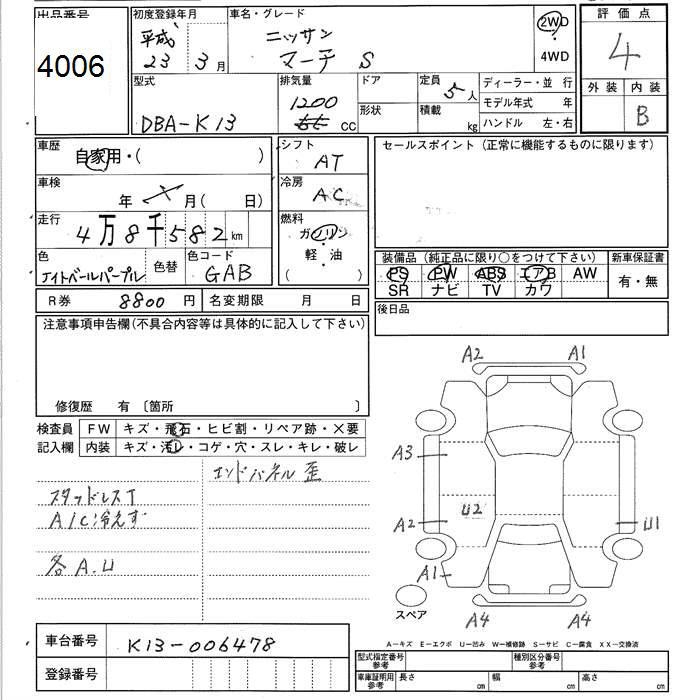 出品番号
4006
初度登録年月
平成
23 3月
車名・グレード
ニッサン
マーチ S
2WD
4WD
評価点
4
外装 内装
B
型式
DBA-K13
排気量
1200
cc
ドア
形状
定員
5人
積載
kg
ディーラー・並 行
モデル年式 年
ハンドル 左・右
車歴
自家用・( )
車検
年 月(日)
走行
4万8千582km
色
ナイトベールパープル
色替
色コード
GAB
シフト
AT
冷房
AC
燃料
ガソリン
軽・油
( )
セールスポイント(正常に機能するものに限ります)
装備品(純正品に限り○をつけて下さい)
PS PW ABS エアB AW
SR ナビ TV カワ
新車保証書
有・無
R券 8800円
名変期限 月 日
後日品
注意事項申告欄(不具合内容等は具体的に記入して下さい)
修復歴 有〔箇所 〕
検査員
記入欄
FW キズ・飛石・ヒビ割・リペア跡・X要
内装 キズ・汚レ・コゲ・穴・スレ・キレ・破レ
エンドパネル歪
スタッドレスT
A/C冷えず
各A.U
A2 A1
A3
A2 U2 U1
A1
スペア
A4 A4
A−キズ E−エクボ U−凹み W−補修跡 S−サビ C−腐食 XX−交換済
車台番号 K13-006478
登録番号
型式指定番号
参考
種別区分番号
参考
車庫証明用
参考
長さ cm 幅 cm 高さ cm